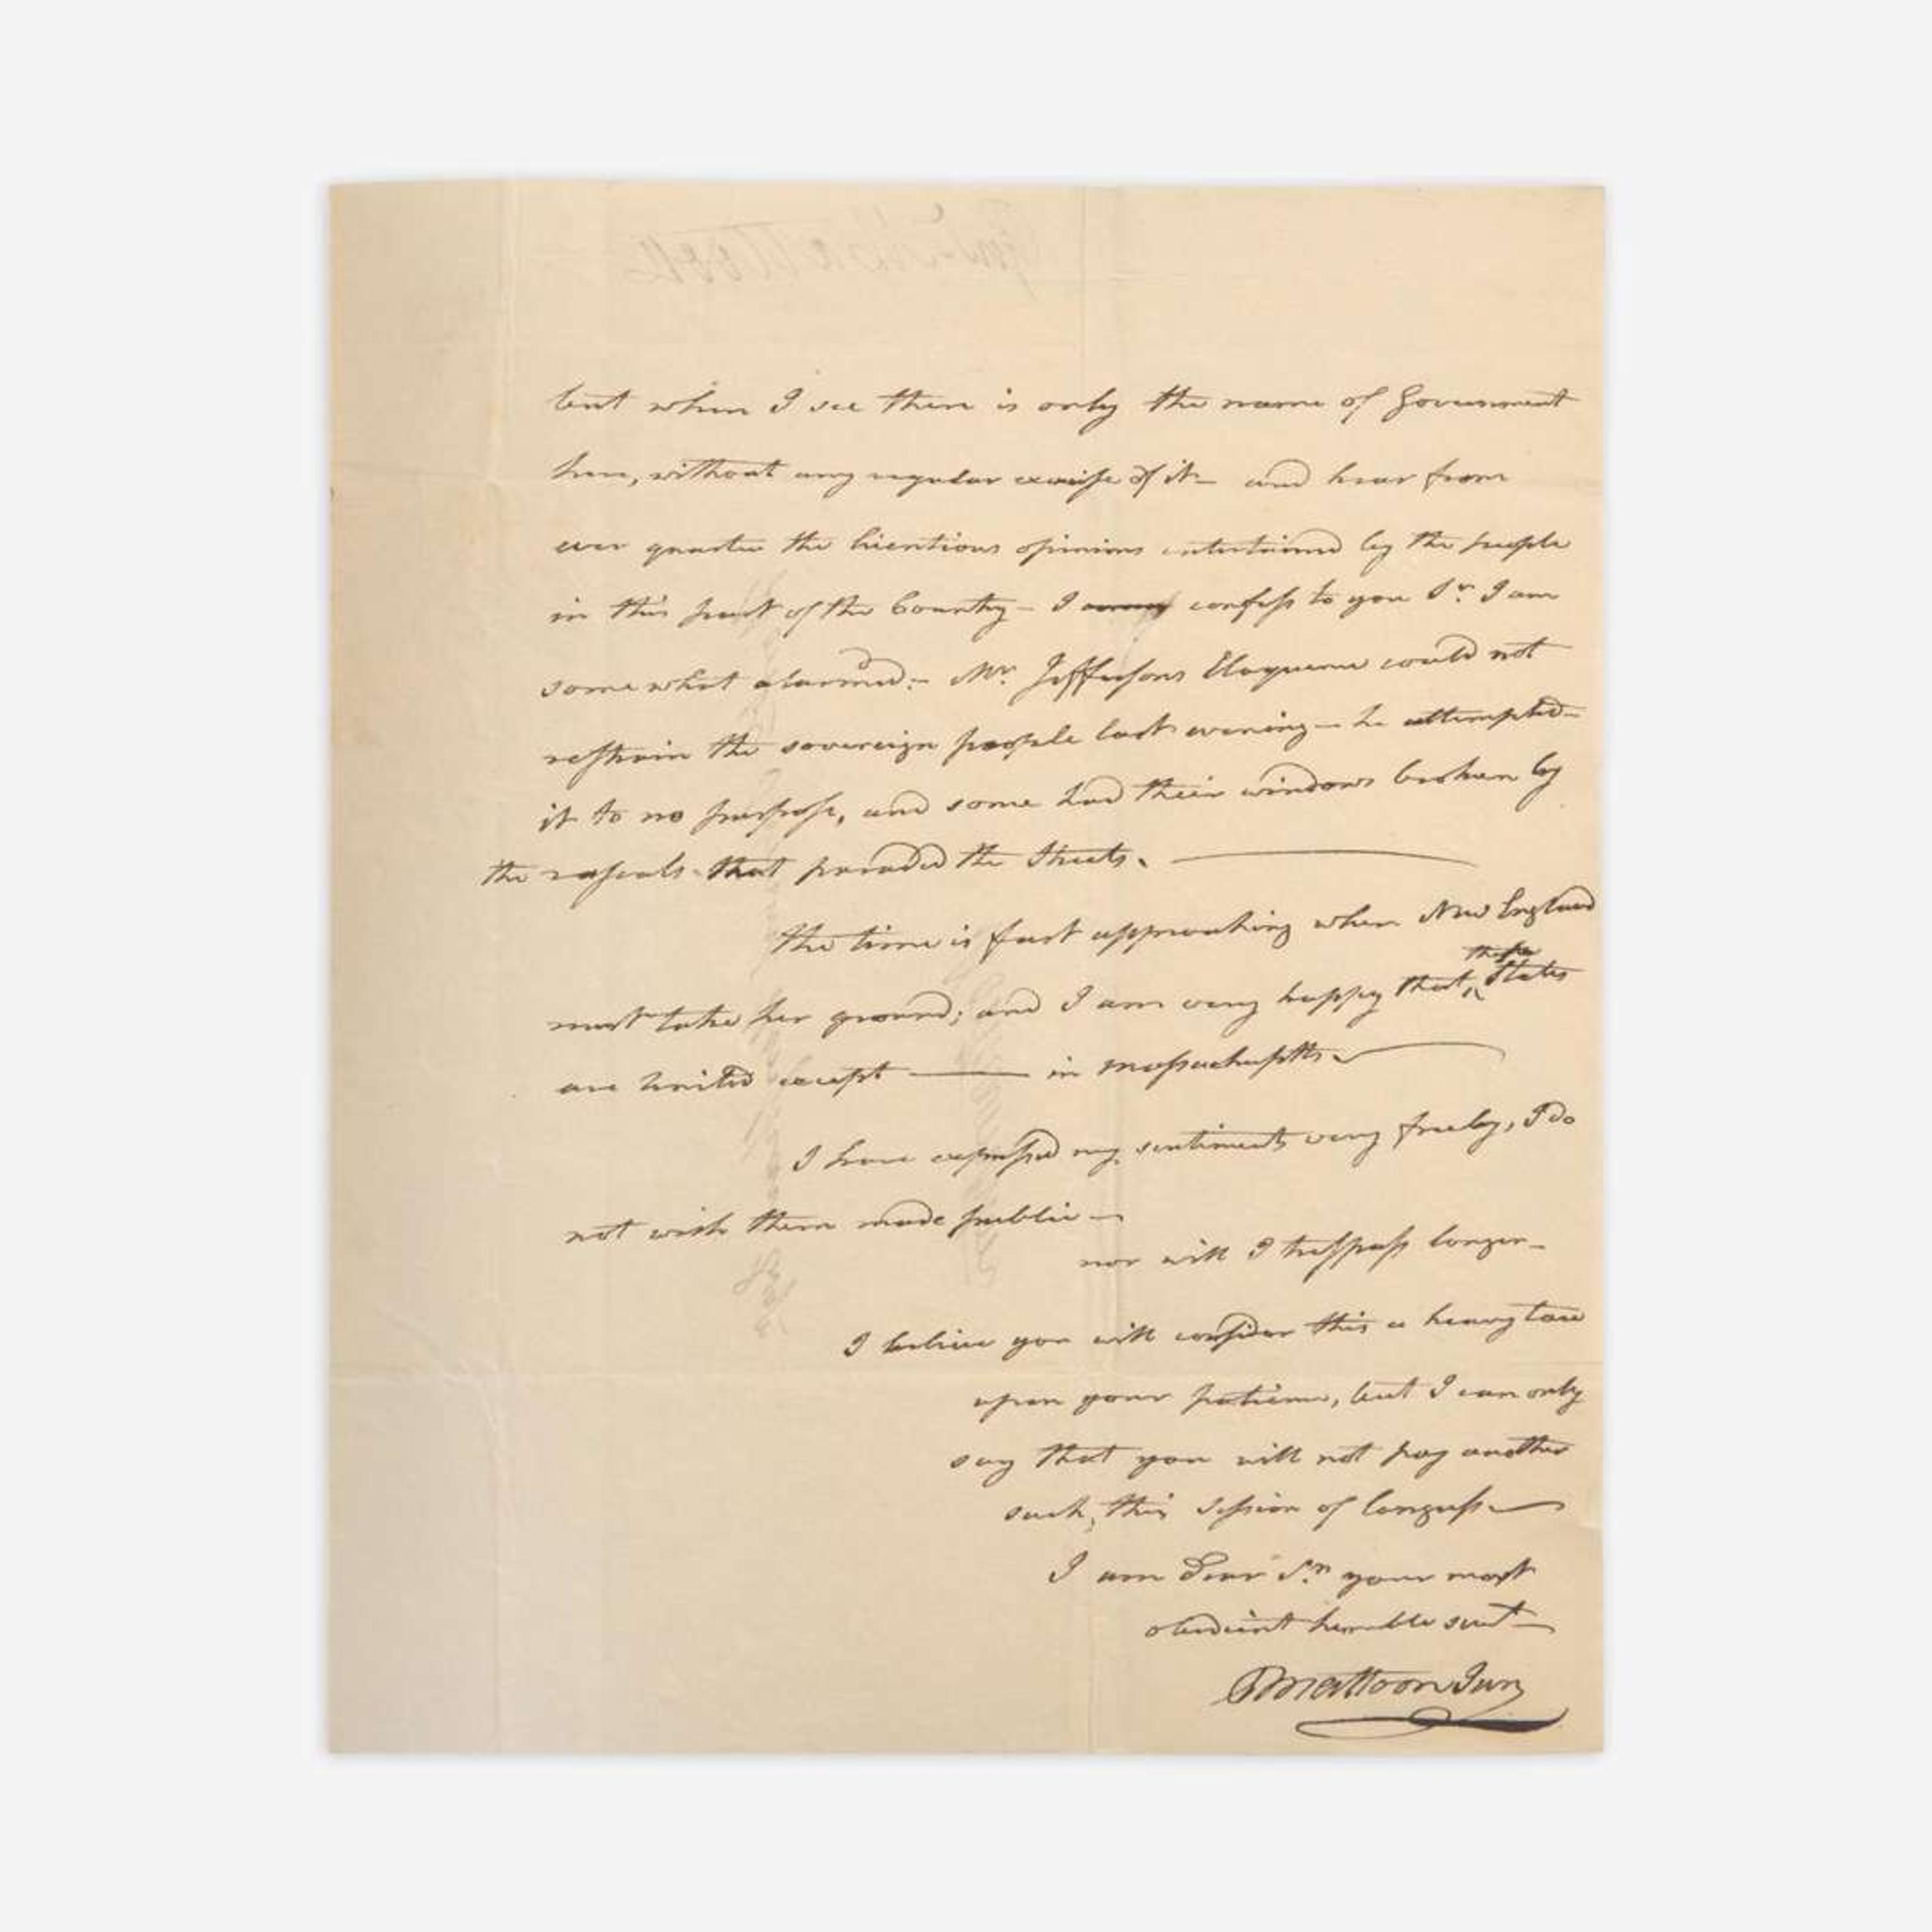 but when I see there is only the name of Government
here, without any regular exercise of it – and hear from
ever quarter the licentious opinions entertained by the people
in this part of the Country – I confess to you Sr. I am
somewhat alarmed:– Mr. Jeffersons Eloquence could not
restrain the sovereign people last evening – he attempted
it to no purpose, and some had their windows broken by
the rascals that paraded the Streets. —
The time is fast approaching when New England
must take her ground; and I am very happy that these States
are united except —— in Massachusetts. —
I have expressed my sentiments very freely, I do
not wish them made public —
nor will I trespass longer –
I believe you will consider this a heavy tax
upon your patience, but I can only
say that you will not pay another
such, this session of Congress —
I am Dear Sr. your most
obedient humble servt —
E Mattoon Jun